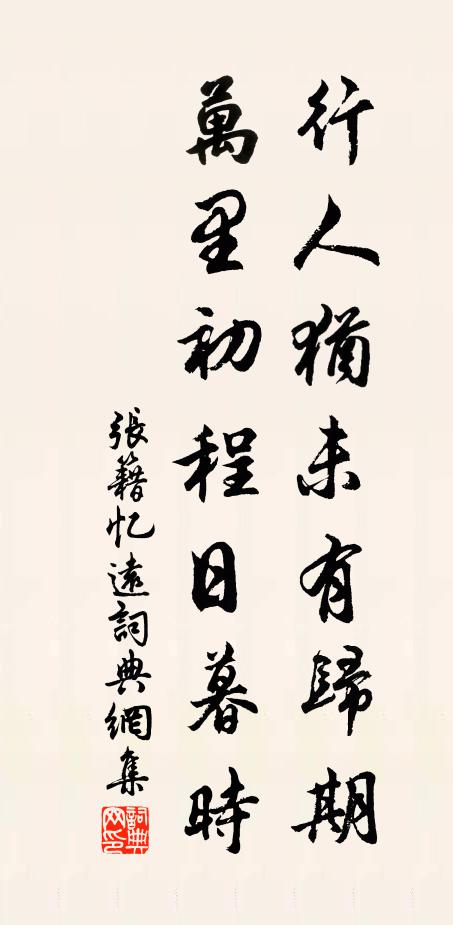 行人猶未有歸期
萬里初程日暮時
張籍忆遠詞典網集
詞典网印